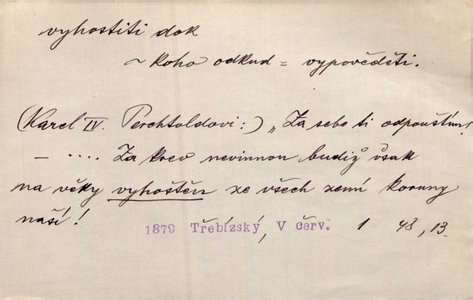 vyhostiti dok
~ koho odkud = vypověděti.
(Karel IV. Perchtoldovi:) „Za sebe ti odpouštím!
— .... Za krev nevinnou budiž však
na věky vyhoštěn ze všech zemí koruny
naší!
1879 Třebízský, V červ. 1 48, 13.